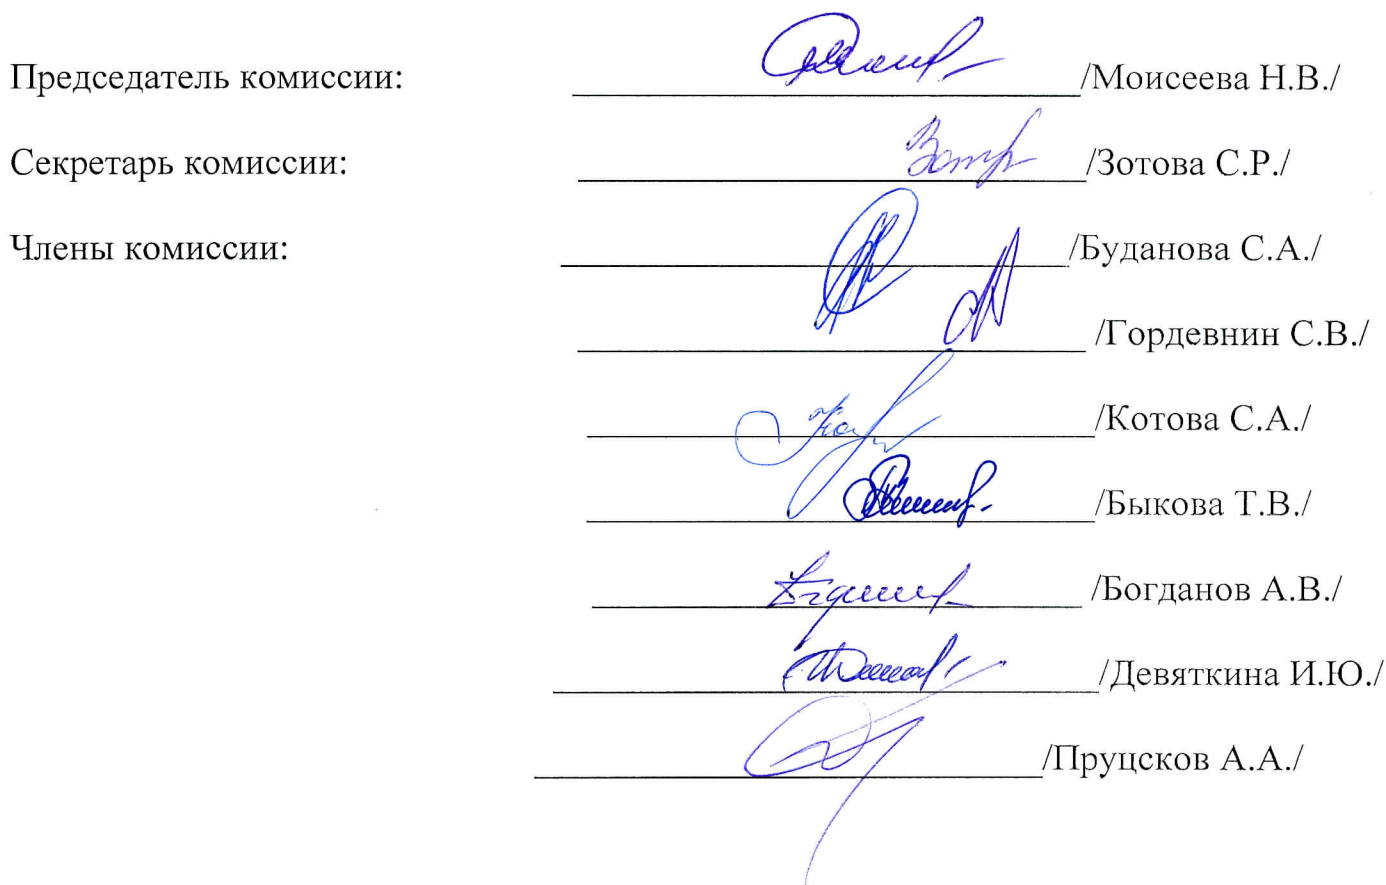 Председатель комиссии: /Моисеева Н.В./
Секретарь комиссии: /Зотова С.Р./
Члены комиссии: /Буданова С.А./
/Гордевнин С.В./
/Котова С.А./
/Быкова Т.В./
/Богданов А.В./
/Девяткина И.Ю./
/Пруцсков А.А./